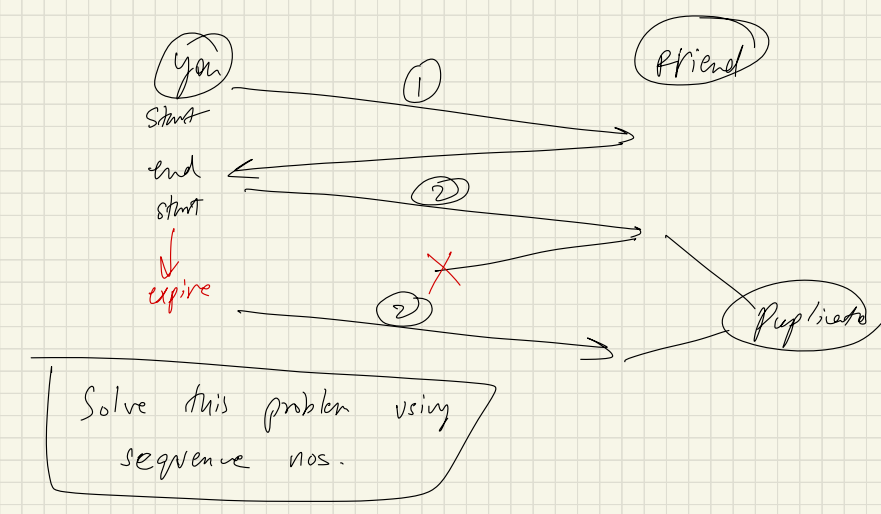 You
Friend
1
start
end
2
start
expire
2
Duplicate
Solve this problem using
sequence nos.